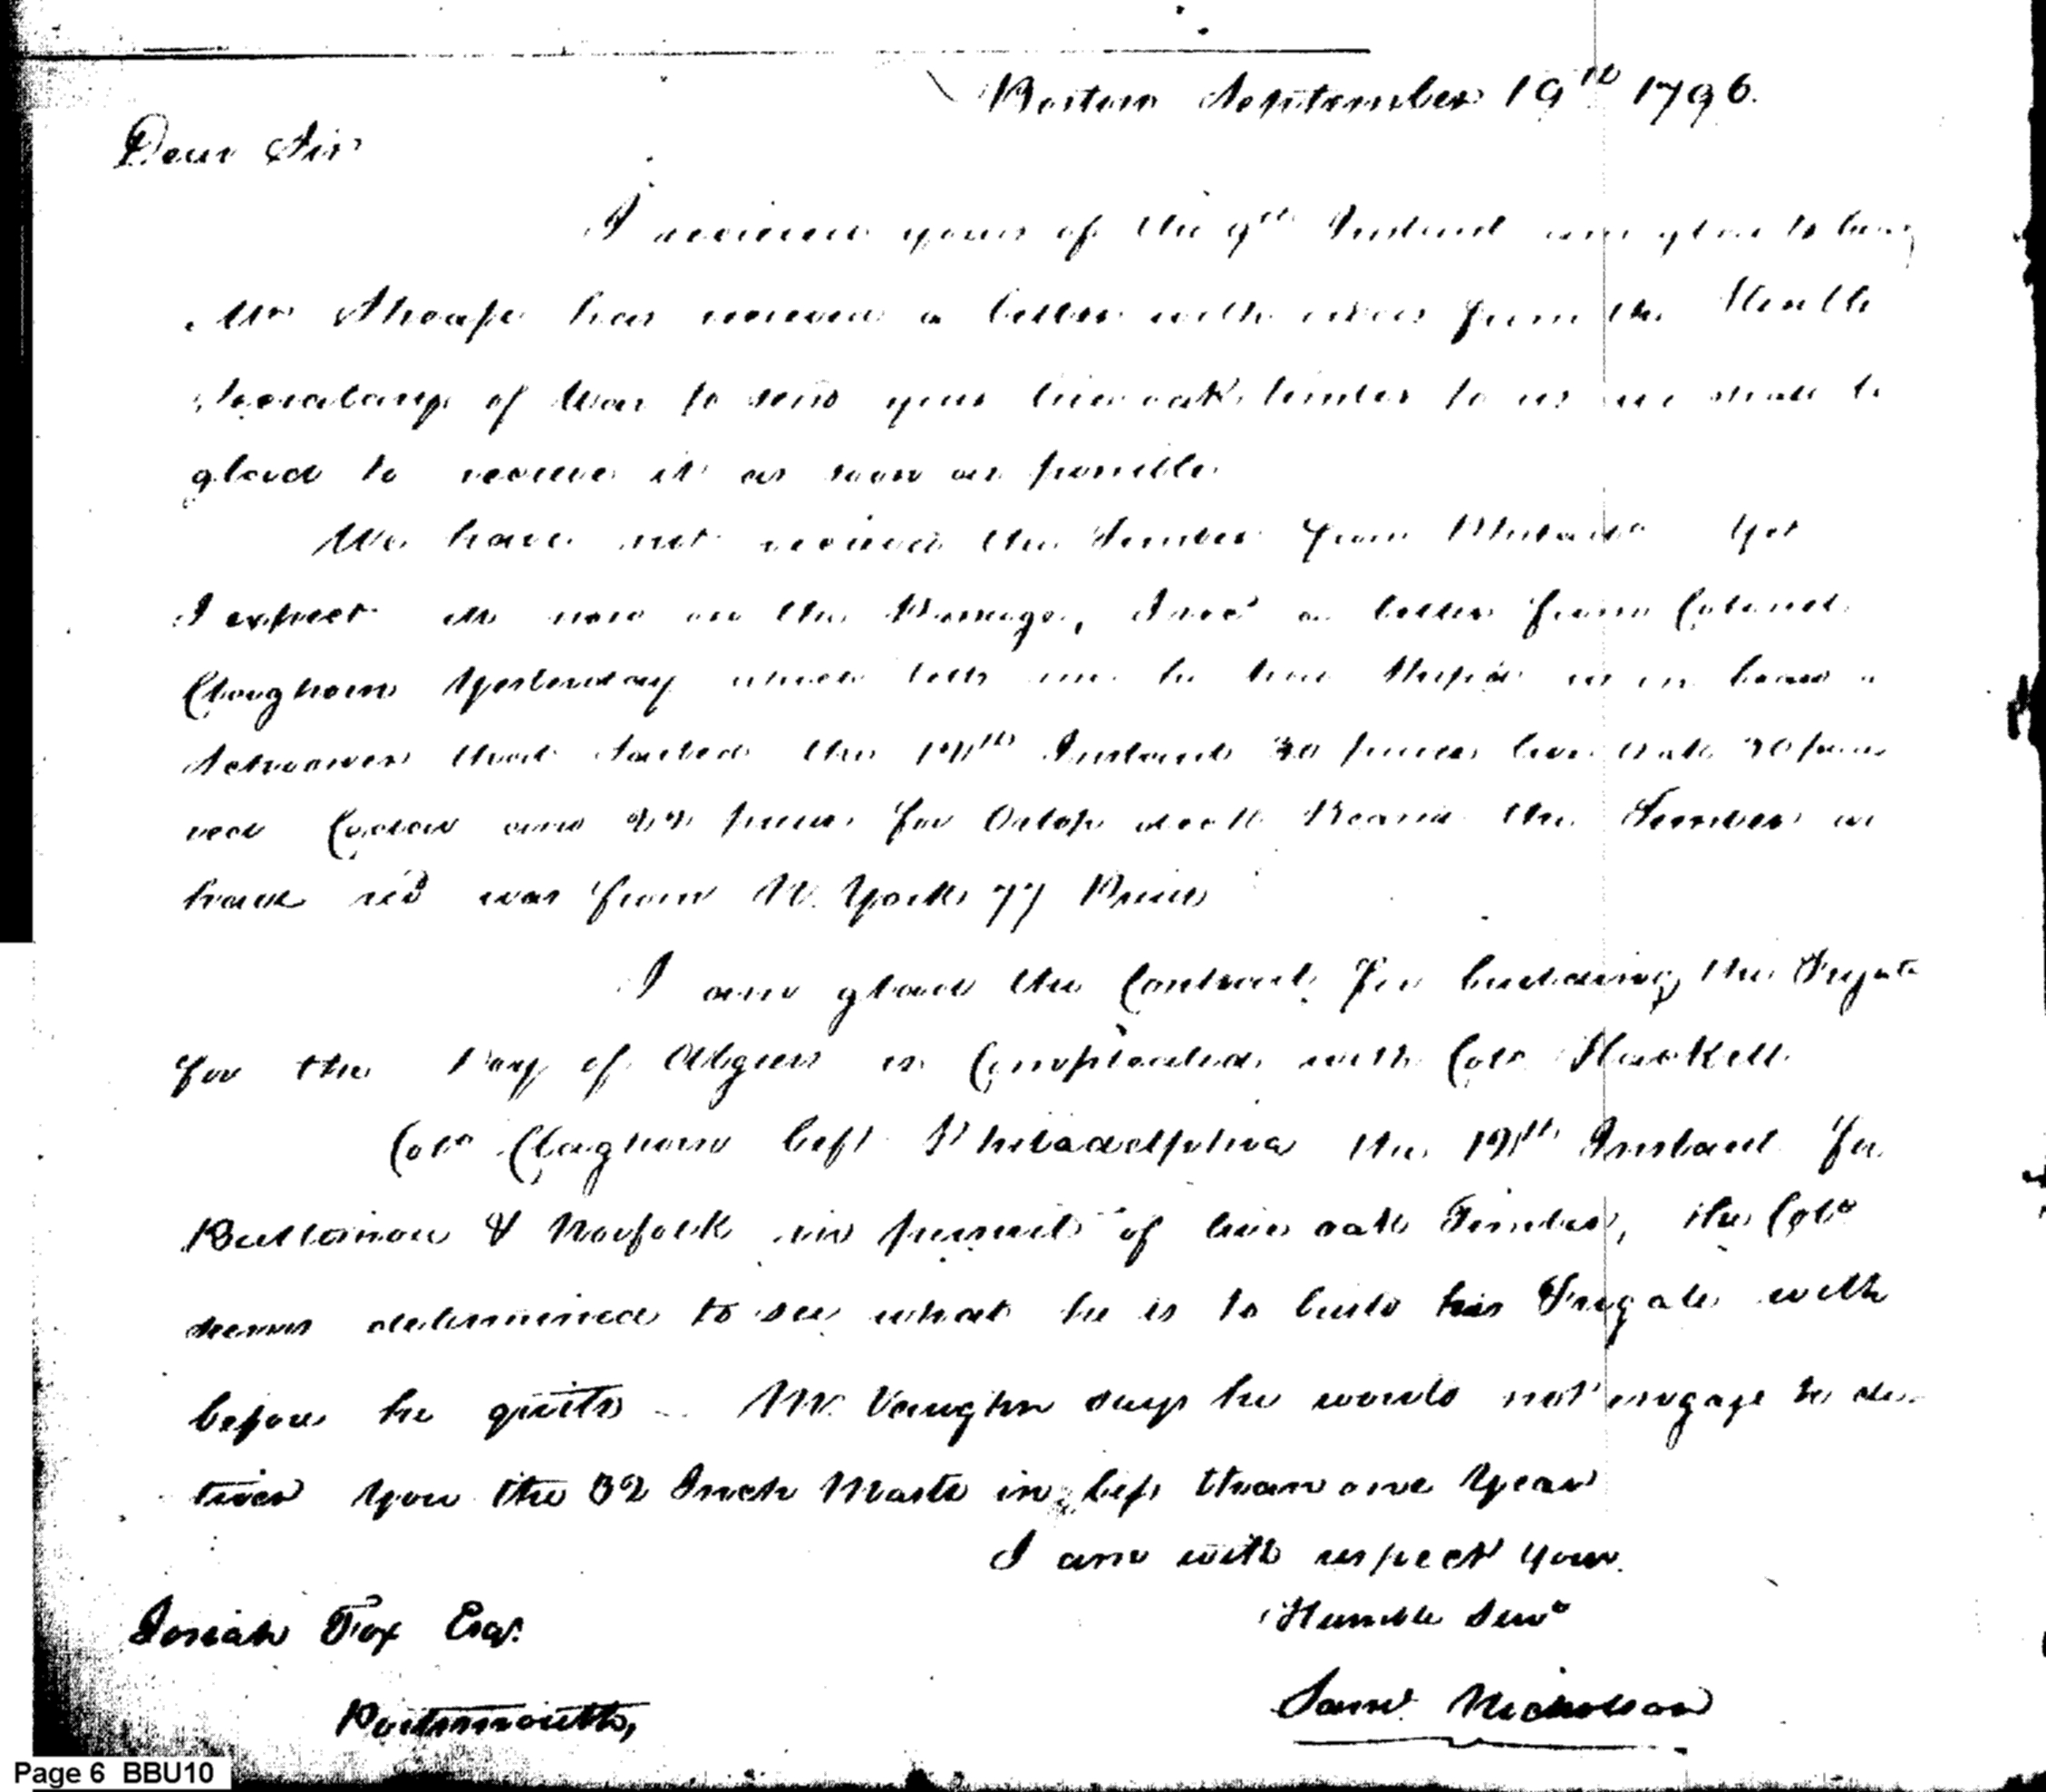 Boston September 19th 1796.
Dear Sir
I received yours of the 9th Instant am glad to hear
Mr Sheafe has received a letter with orders from the Honble
Secretary of War to send your live oak timber to us we shall be
glad to receive it as soon as possible
We have not received the Timber from Philada Yet
I expect its now on the Passage, I recd a letter from Colonel
Claghorn Yesterday which tells me he has Shipd us on board a
Schooner that Sailed the 12th Instant 30 pieces live Oak 20 pieces
red Cedar and 22 pieces for Orlop deck Beams the Timber we
have recd was from N. York 77 Pieces
I am glad the Contract for building the Frigate
for the Dey of Algiers is Compleated with Colo Hackett
Colo Claghorn left Philadelphia the 12th Instant for
Baltimore & Norfolk in pursuit of live oak Timber, the Colo
seems determined to see what he is to build his Frigate with
before he quits - Mr. Vaughn says he would not engage to de-
liver you the 32 Inch Masts in less than one Year
I am with respect your
Humble Servt
Josiah Fox Esqr.
Saml Nicholson
Portsmouth,
Page 6 BBU10